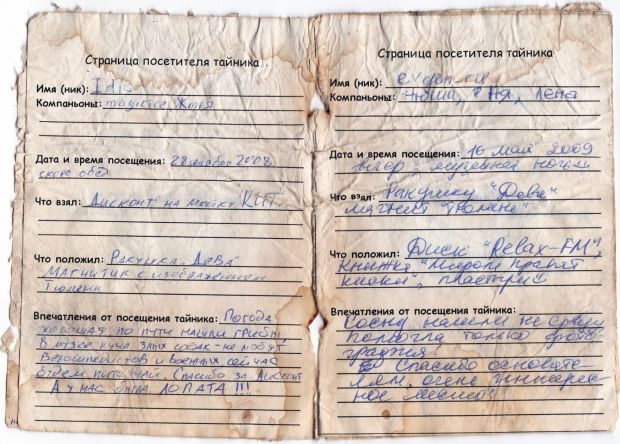 Страница посетителя тайника
Имя (ник): Idis
Компаньоны: magictice Коля
Дата и время посещения: 28 2008
скоро обед
Что взял: Дисконт на мойку КИТ
Что положил: Ракушка "Дева"
Магнитик с изображением
Тюмени
Впечатления от посещения тайника: Погода
хорошая по пути нашли грибы!
В музее куча злых собак - не любят
Велосипедистов и военных сейчас
будем пить чай. Спасибо за Дисконт
А у нас была ЛОПАТА !!!
Страница посетителя тайника
Имя (ник):
Компаньоны: Аня, Лена
Дата и время посещения: 16 май 2009
вечер, музейная ночь
Что взял: Ракушку "Дева"
магнит "Тюмень"
Что положил: Диск "Relax-FM",
книжка "Миром правят
киски", пластырь
Впечатления от посещения тайника:
Сосну нашли не сразу
помогла только фото
графия
Спасибо основате-
лям, очень интерес-
ное место!